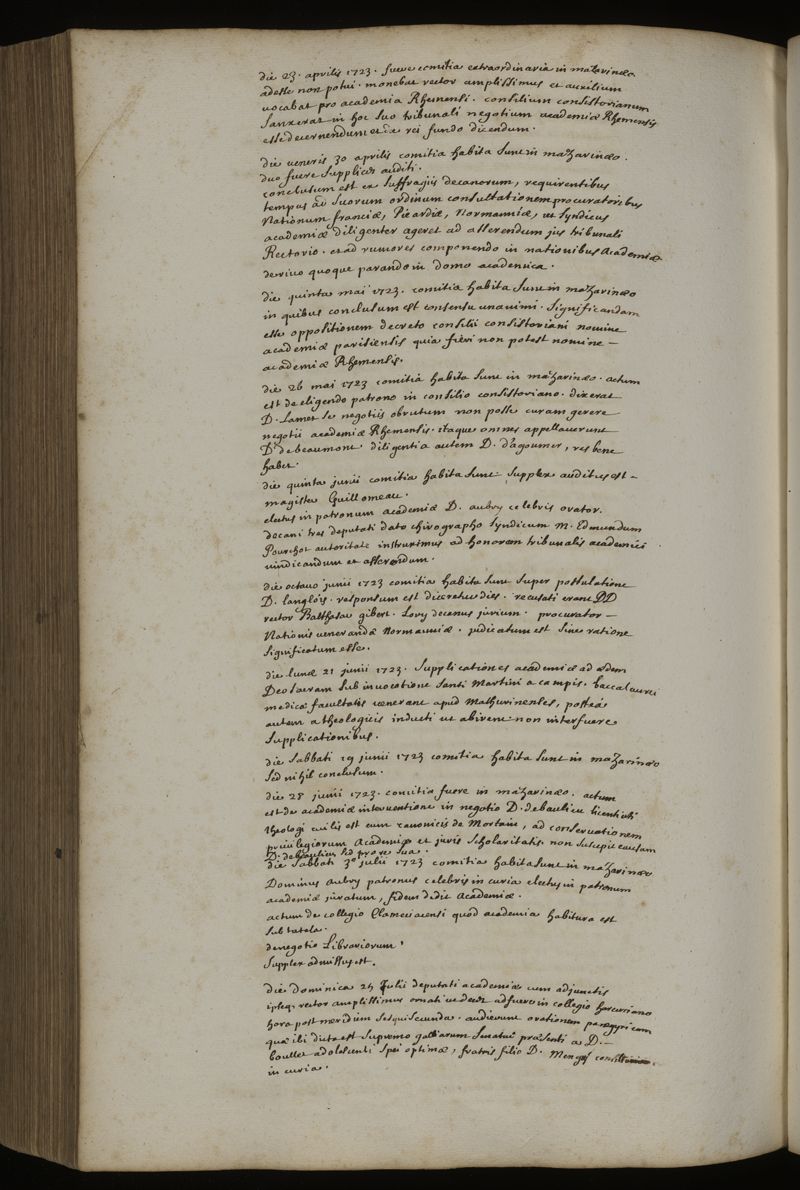 die 23. aprilis 1723. fuere comitia extraordinaria in mazarinæo
adesse non potui. monebat rector amplissimus et auxilium
vocabat pro academia Rhemensi. consilium consistorianum
sanxerat in hoc suo tribunali negotium academiæ Rhemensis
esse decernendum et de rei fundo dicendum.
die veneris 30 aprilis comitia habita sunt in mazarinæo.
duo fuere supplices auditi.
conclusum est ex suffragiis decanorum, requirentibus
tempus ad suorum ordinum consultationem procuratoribus
Nationum franciæ, Picardiæ, Normanniæ, ut syndicus
academiæ diligenter ageret ad asserendum jus tribunali
Rectorio. et ad rumores componendo in nationibus Academiæ
de vivo quoque parando in domo academica.
die quinta mai 1723. comitia habita sunt in mazarinæo
in quibus conclusum est consensu unanimi. significandam
esse oppositionem decreto consilii consistoriani nomine
academiæ parisiensis quia fieri non potest nomine –
academiæ Rhemensis.
die 26 mai 1723 comitia habita sunt in mazarinæo. actum
est de eligendo patrono in consilio consistoriano. dixerat
D. Lamet se negotiis obrutum non posse curam gerere
negotii academiæ Rhemensis. itaque omnes appellaverunt
D. de beaumont. diligentia autem D. dagoumer, res bene
habet.
die quinta junii comitia habita sunt. supplex auditus est –
magister Guillomeau.
electus in patronum academiæ D. aubry celebris orator.
decani tres deputati dato chirographo syndicum M. Edmundum
Pourchot autoritate instruximus ad honorem tribunalis academici
vindicandum et asserendum.
die octavo junii 1723 comitia habita sunt super postulatione
D. langlois. responsum est diceretur dies. recusati erant DD
rector Balthasar gibert. Lovy decanus jurium. procurator –
Nationis venerandæ Normanniæ. judicatum est sine ratione
significatum esse.
die lunæ 21 junii 1723. supplicationes academiæ ad ædem
Deo sacram sub invocatione santi Martini a campis. baccalaurei
medicæ facultatis venerant apud Mathurinenses, postea
autem a theologicis inducti ut abirent non interfuere
supplicationibus.
die sabbati 19 junii 1723 comitia habita sunt in mazarinæo
sed nihil conclusum.
die 28 junii 1723. comitia fuere in mazarinæo. actum
est de academiæ interventione in negotio D. de baulieu licentiati
theologi cui lis est cum canonicis de Mortain, ad conservationem
privilegiorum Academiæ et juris scholaritatis. non suscepit causam
D. de baulieu sed pro re sua.
die sabbati 3º julii 1723 comitia habita sunt in mazarinæo
Dominus aubry patronus celebris in curia electus in patronum
academiæ juratum, fidem dedit Academiæ.
actum de collegio Clamecacensi quod academia habitura est
sub tutela.
de negotio Librariorum.
supplex admissus est.
die Dominica 25 Julii deputati academiæ cum adjunctis
ipseq. rector amplissimus ornati ut decet adfuere in collegio harcuriano
hora post meridiem sesqui secunda. audierunt orationem panegyricam
quæ ibi dicta est supremo galliarum senatui præsenti a D. –
boullet adolescenti spei optimæ, fratris filio D. Menguy consiliarii
in curia.